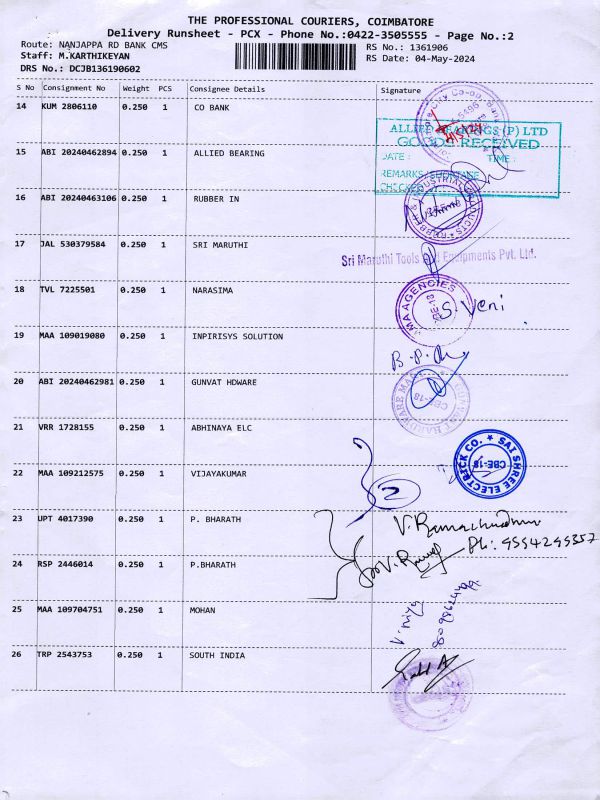 THE PROFESSIONAL COURIERS, COIMBATORE
Delivery Runsheet - PCX - Phone No.:0422-3505555 - Page No.:2
Route: NANJAPPA RD BANK CMS
RS No.: 1361906
Staff: M.KARTHIKEYAN
RS Date: 04-May-2024
DRS No.: DCJB136190602
S No Consignment No Weight PCS Consignee Details Signature
14 KUM 2806110 0.250 1 CO BANK
ALLIED BEARINGS (P) LTD
GOODS RECEIVED
15 ABI 20240462894 0.250 1 ALLIED BEARING
DATE : TIME :
REMARKS / SHORTAGE
CHECKED
16 ABI 20240463106 0.250 1 RUBBER IN
RUBBER & INDUSTRIAL PRODUCTS
17 JAL 530379584 0.250 1 SRI MARUTHI
Sri Maruthi Tools and Equipments Pvt. Ltd.
18 TVL 7225501 0.250 1 NARASIMA
MA AGENCIES
CBE-18
S. Veni
19 MAA 109019080 0.250 1 INPIRISYS SOLUTION
20 ABI 20240462981 0.250 1 GUNVAT HDWARE
GUNVANT HARDWARE MART
CBE-18
21 VRR 1728155 0.250 1 ABHINAYA ELC
SAI SHREE ELECTRICK CO.
CBE-18
22 MAA 109212575 0.250 1 VIJAYAKUMAR
2
23 UPT 4017390 0.250 1 P. BHARATH
V. Ramachandran
Ph: 9994295357
24 RSP 2446014 0.250 1 P.BHARATH
25 MAA 109704751 0.250 1 MOHAN
26 TRP 2543753 0.250 1 SOUTH INDIA